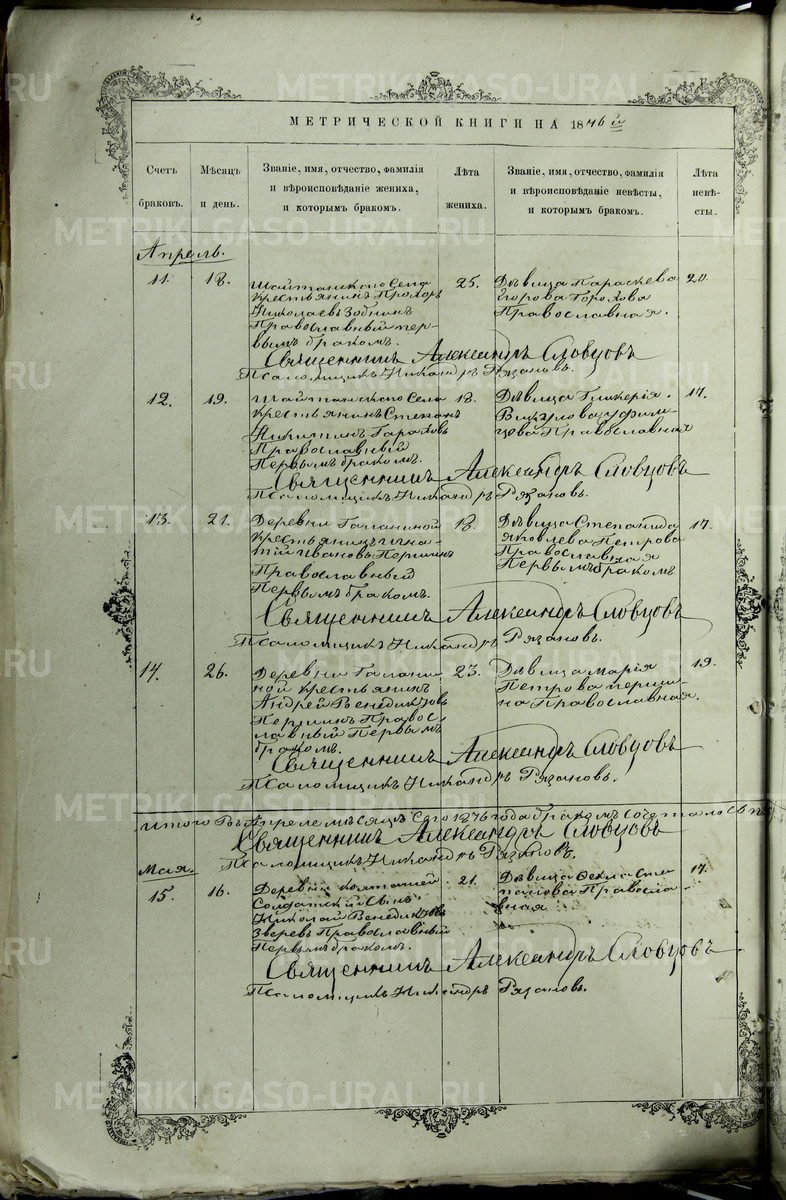 МЕТРИЧЕСКОЙ КНИГИ НА 1876 й
Счетъ браковъ.
Мѣсяцъ и день.
Званіе, имя, отчество, фамилія и вѣроисповѣданіе жениха, и которымъ бракомъ.
Лѣта жениха.
Званіе, имя, отчество, фамилія и вѣроисповѣданіе невѣсты, и которымъ бракомъ.
Лѣта невѣсты.
Апрель.
11. 18. Шайтанскаго Села 25. Дѣвица Параскева 20.
крестьянинъ Прохоръ Егорова Горохова
Николаевъ Зобнинъ Православная.
Православный пер-
вымъ бракомъ.
Священникъ Александръ Словцовъ
Псаломщикъ Никандръ Рязановъ.
12. 19. Шайтанскаго Села 18. Дѣвица Гликерія 17.
крестьянинъ Степанъ Викулова
Никитинъ Православная
Православный
Первымъ бракомъ.
Священникъ Александръ Словцовъ
Псаломщикъ Никандръ Рязановъ.
13. 21. Деревни Галаниной 18. Дѣвица Степанида 17.
крестьянинъ Игна- Яковлева Петрова
тій Ивановъ Першинъ Православная
Православный Первымъ бракомъ
Первымъ бракомъ.
Священникъ Александръ Словцовъ
Псаломщикъ Никандръ Рязановъ.
14. 26. Деревни Галани- 23. Дѣвица Марія 19.
ной крестьянинъ Петрова перши-
Андрей Венедиктовъ на Православная.
Першинъ Правос-
лавный Первымъ
бракомъ.
Священникъ Александръ Словцовъ
Псаломщикъ Никандръ Рязановъ.
Итого Въ Апрелѣ мѣсяцѣ Сего 1876 года бракомъ сочетались
Священникъ Александръ Словцовъ
Псаломщикъ Никандръ Рязановъ.
Мая.
15. 16. Деревни 21. Дѣвица Ѳекла Сте- 17.
Солдатскій Сынъ панова Правосла-
Николай Венедиктовъ вная
Зверевъ Православный
Первымъ бракомъ.
Священникъ Александръ Словцовъ
Псаломщикъ Никандръ Рязановъ.
METRIKI.GASO-URAL.RU